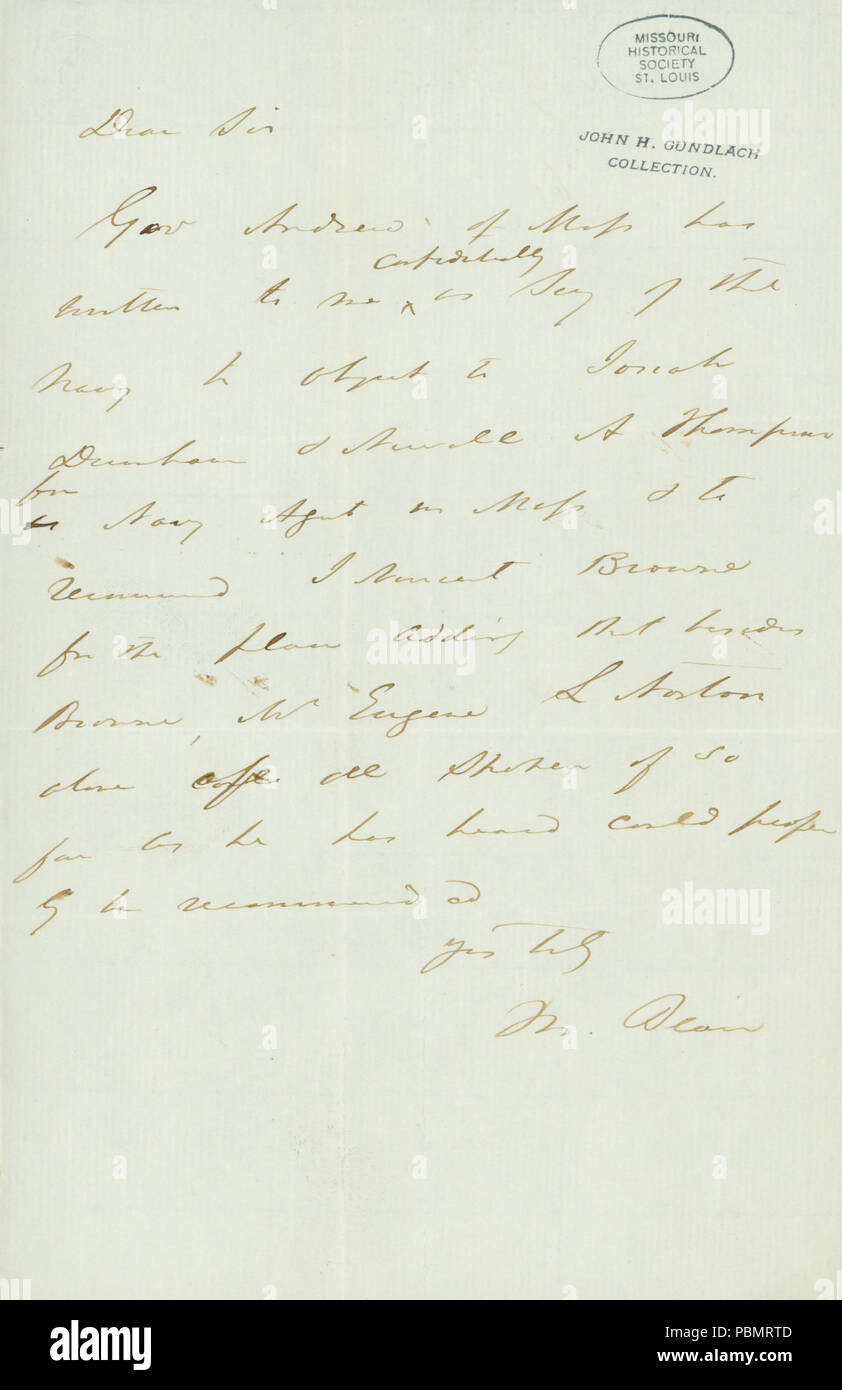 MISSOURI
HISTORICAL
SOCIETY
ST. LOUIS
JOHN H. GUNDLACH
COLLECTION.
Dear Sir
Gov Andrew of Mass has
confidentially
written to me ^ as Secy of the
Navy to object to Josiah
Dunham & Newell A Thompson
for
Navy Agent in Mass & to
recommend J Vincent Browne
for the place adding that besides
Browne, Mr Eugene L Norton
alone of all spoken of so
far as he has heard could proper
ly be recommended
Yrs truly
M. Blair
alamy
Image ID: PBMRTD
www.alamy.com